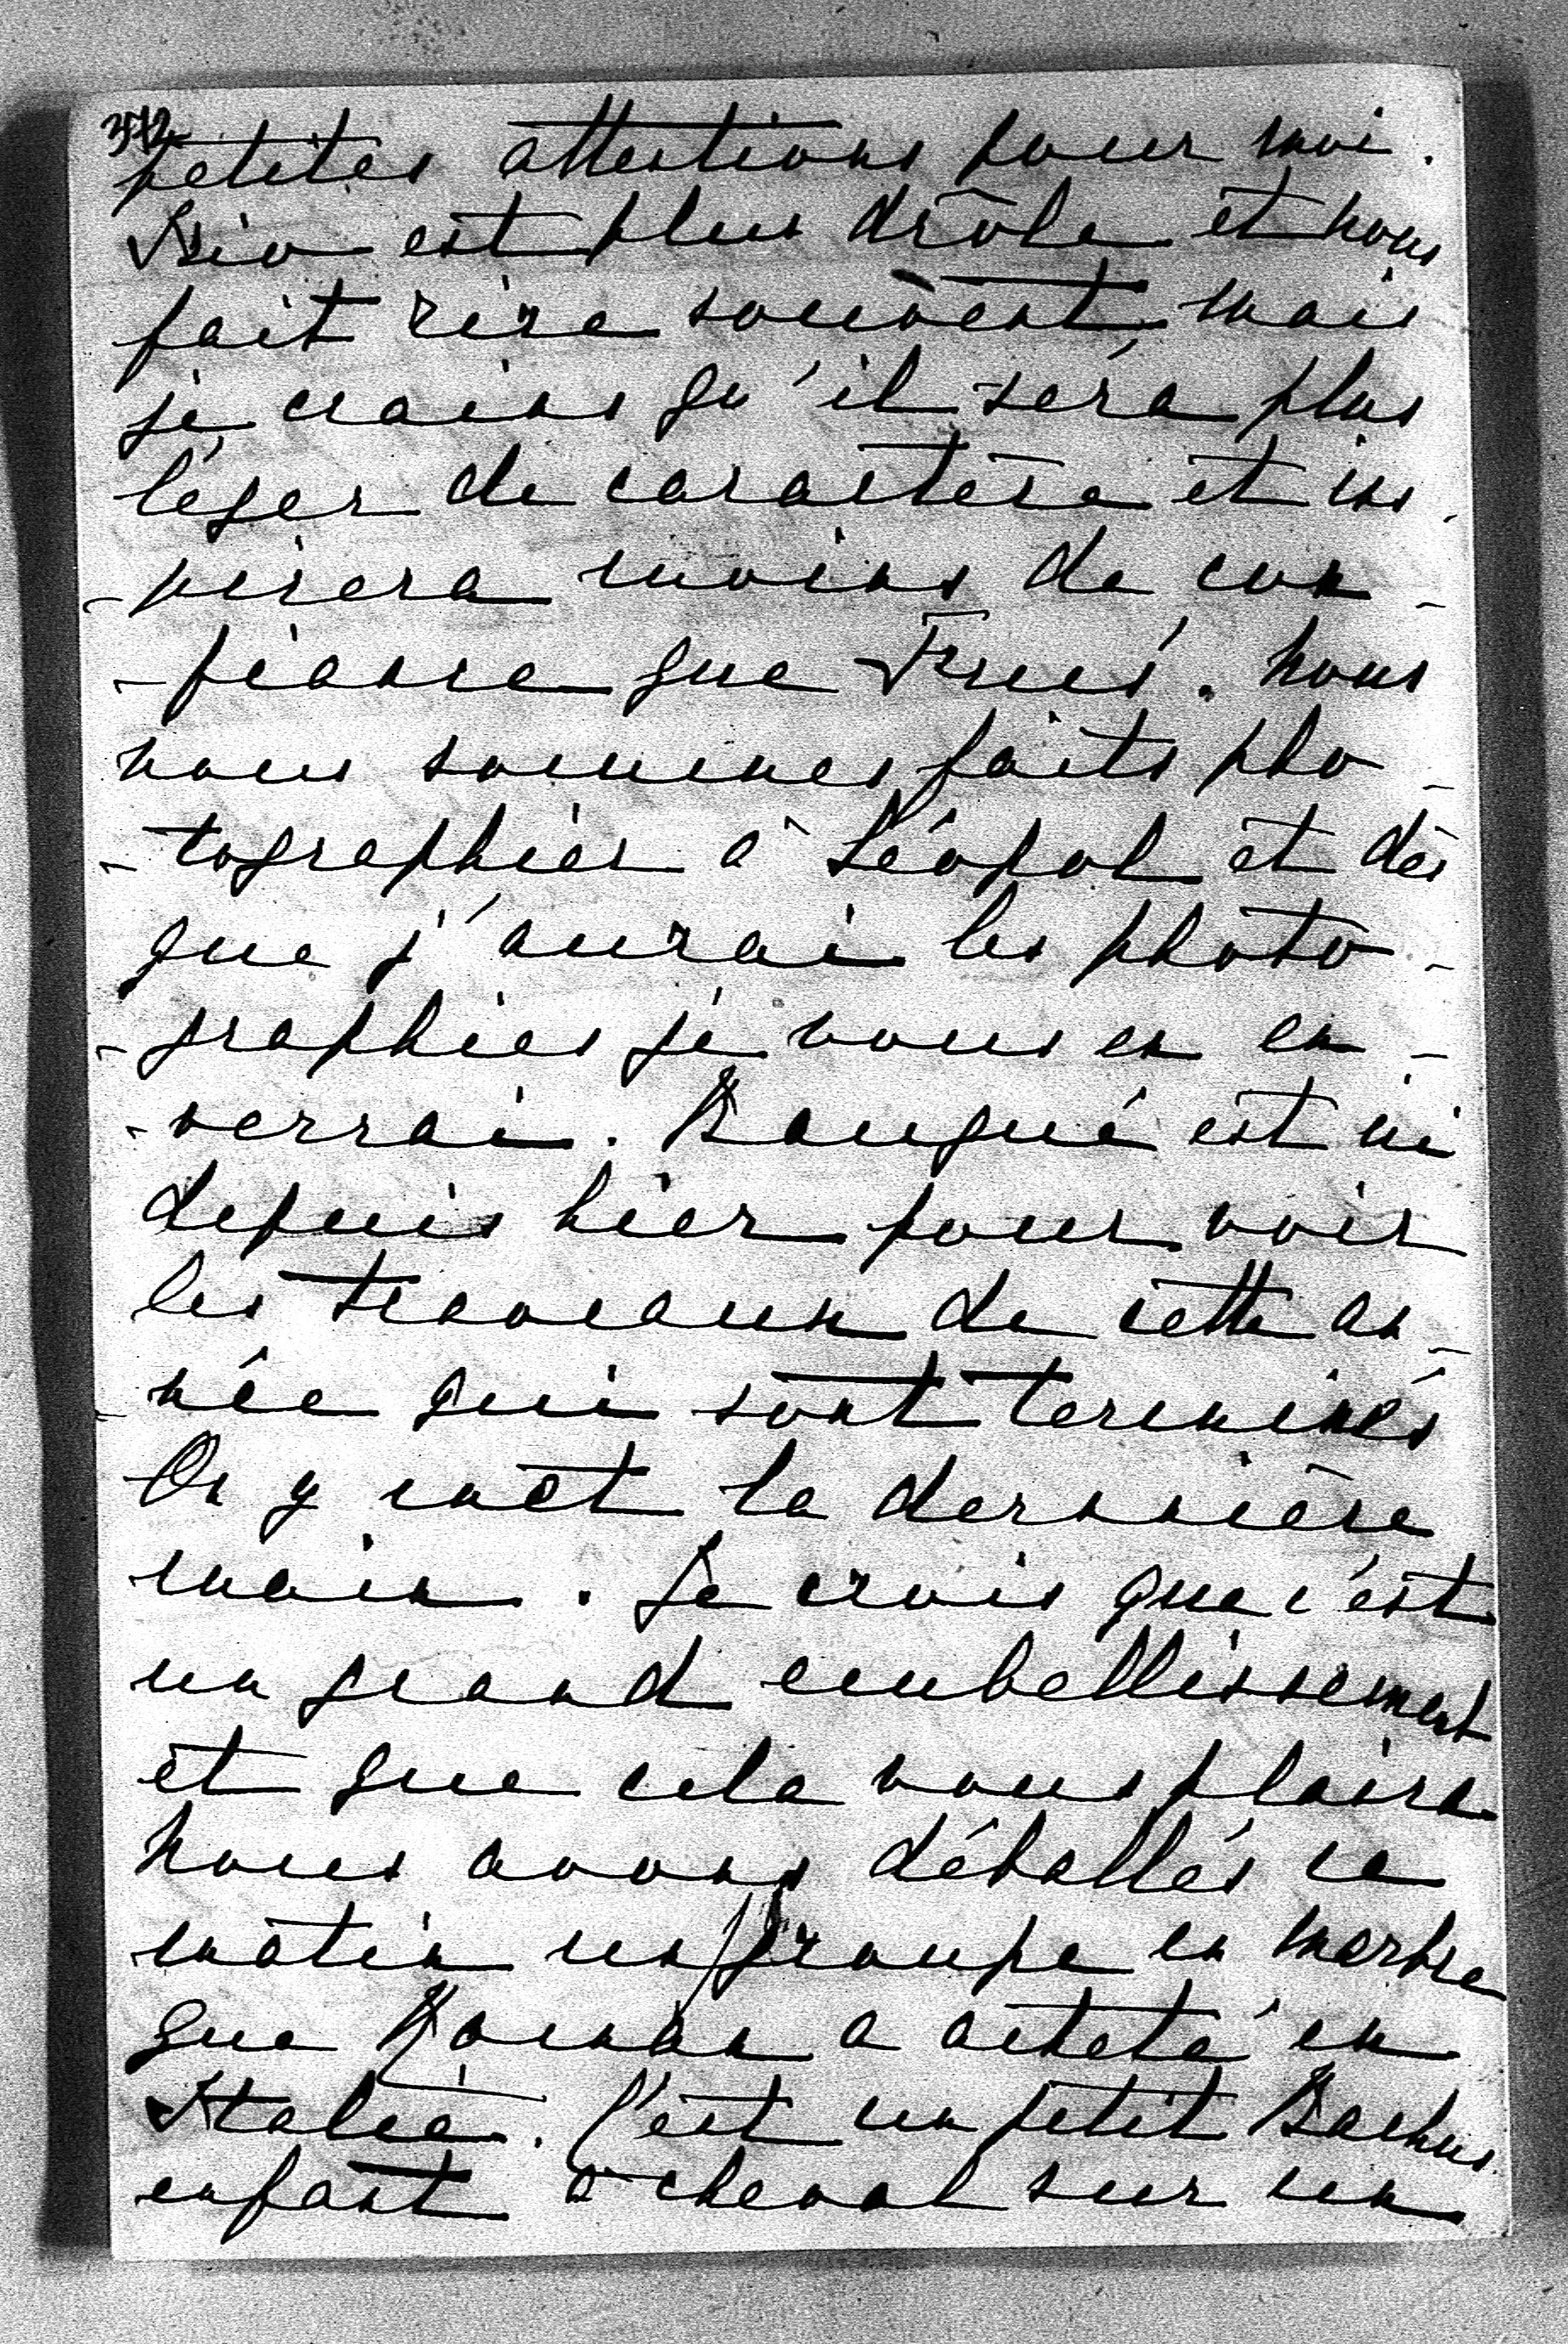 372
petites attentions pour moi.
est plus drôle et nous
fait rire souvent mais
je crains qu'il sera plus
léger de caractère et ins
-pirera moins de con-
-fiance que . Nous
nous sommes faits pho-
-tographier à Léopol et dès
que j'aurai les photo-
-graphies je vous en en-
-verrai. Bauqué est ici
depuis hier pour voir
les travaux de cette an-
-née qui sont terminés
On y met la dernière
main. Je crois que c'est
un grand embellissement
et que cela vous plaira
Nous avons déballés ce
matin un groupe en marbre
que Roman a acheté en
Italie. C'est un petit Bachus
enfant à cheval sur un